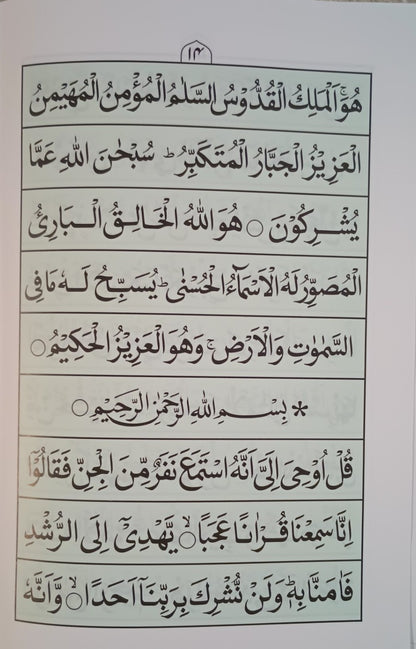 ۱۴
هُوَۚ اَلْمَلِكُ الْقُدُّوْسُ السَّلٰمُ الْمُؤْمِنُ الْمُهَيْمِنُ
الْعَزِيْزُ الْجَبَّارُ الْمُتَكَبِّرُ ؕ سُبْحٰنَ اللّٰهِ عَمَّا
يُشْرِكُوْنَ ○ هُوَ اللّٰهُ الْخَالِقُ الْبَارِئُ
الْمُصَوِّرُ لَهُ الْاَسْمَآءُ الْحُسْنٰى ؕ يُسَبِّحُ لَهٗ مَا فِى
السَّمٰوٰتِ وَالْاَرْضِ ۚ وَهُوَ الْعَزِيْزُ الْحَكِيْمُ ○
* بِسْمِ اللّٰهِ الرَّحْمٰنِ الرَّحِيْمِ ○
قُلْ اُوْحِىَ اِلَىَّ اَنَّهُ اسْتَمَعَ نَفَرٌ مِّنَ الْجِنِّ فَقَالُوْۤا
اِنَّا سَمِعْنَا قُرْاٰنًا عَجَبًا ○ۙ يَّهْدِىْۤ اِلَى الرُّشْدِ
فَاٰمَنَّا بِهٖ ؕ وَلَنْ نُّشْرِكَ بِرَبِّنَاۤ اَحَدًا ○ۙ وَّاَنَّهٗ